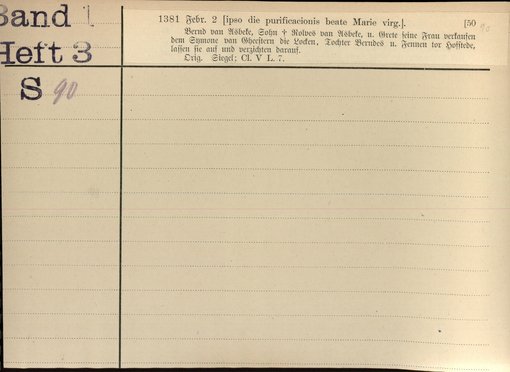 Band 1
Heft 3
S 90
1381 Febr. 2 [ipso die purificacionis beate Marie virg.]. [50
90
Bernd van Asbeke, Sohn † Rolves van Asbeke, u. Grete seine Frau verkaufen
dem Symone van Gheestern die Locken, Tochter Berndes u. Fennen tor Hofstede,
lassen sie auf und verzichten darauf.
Orig. Siegel: Cl. V L. 7.